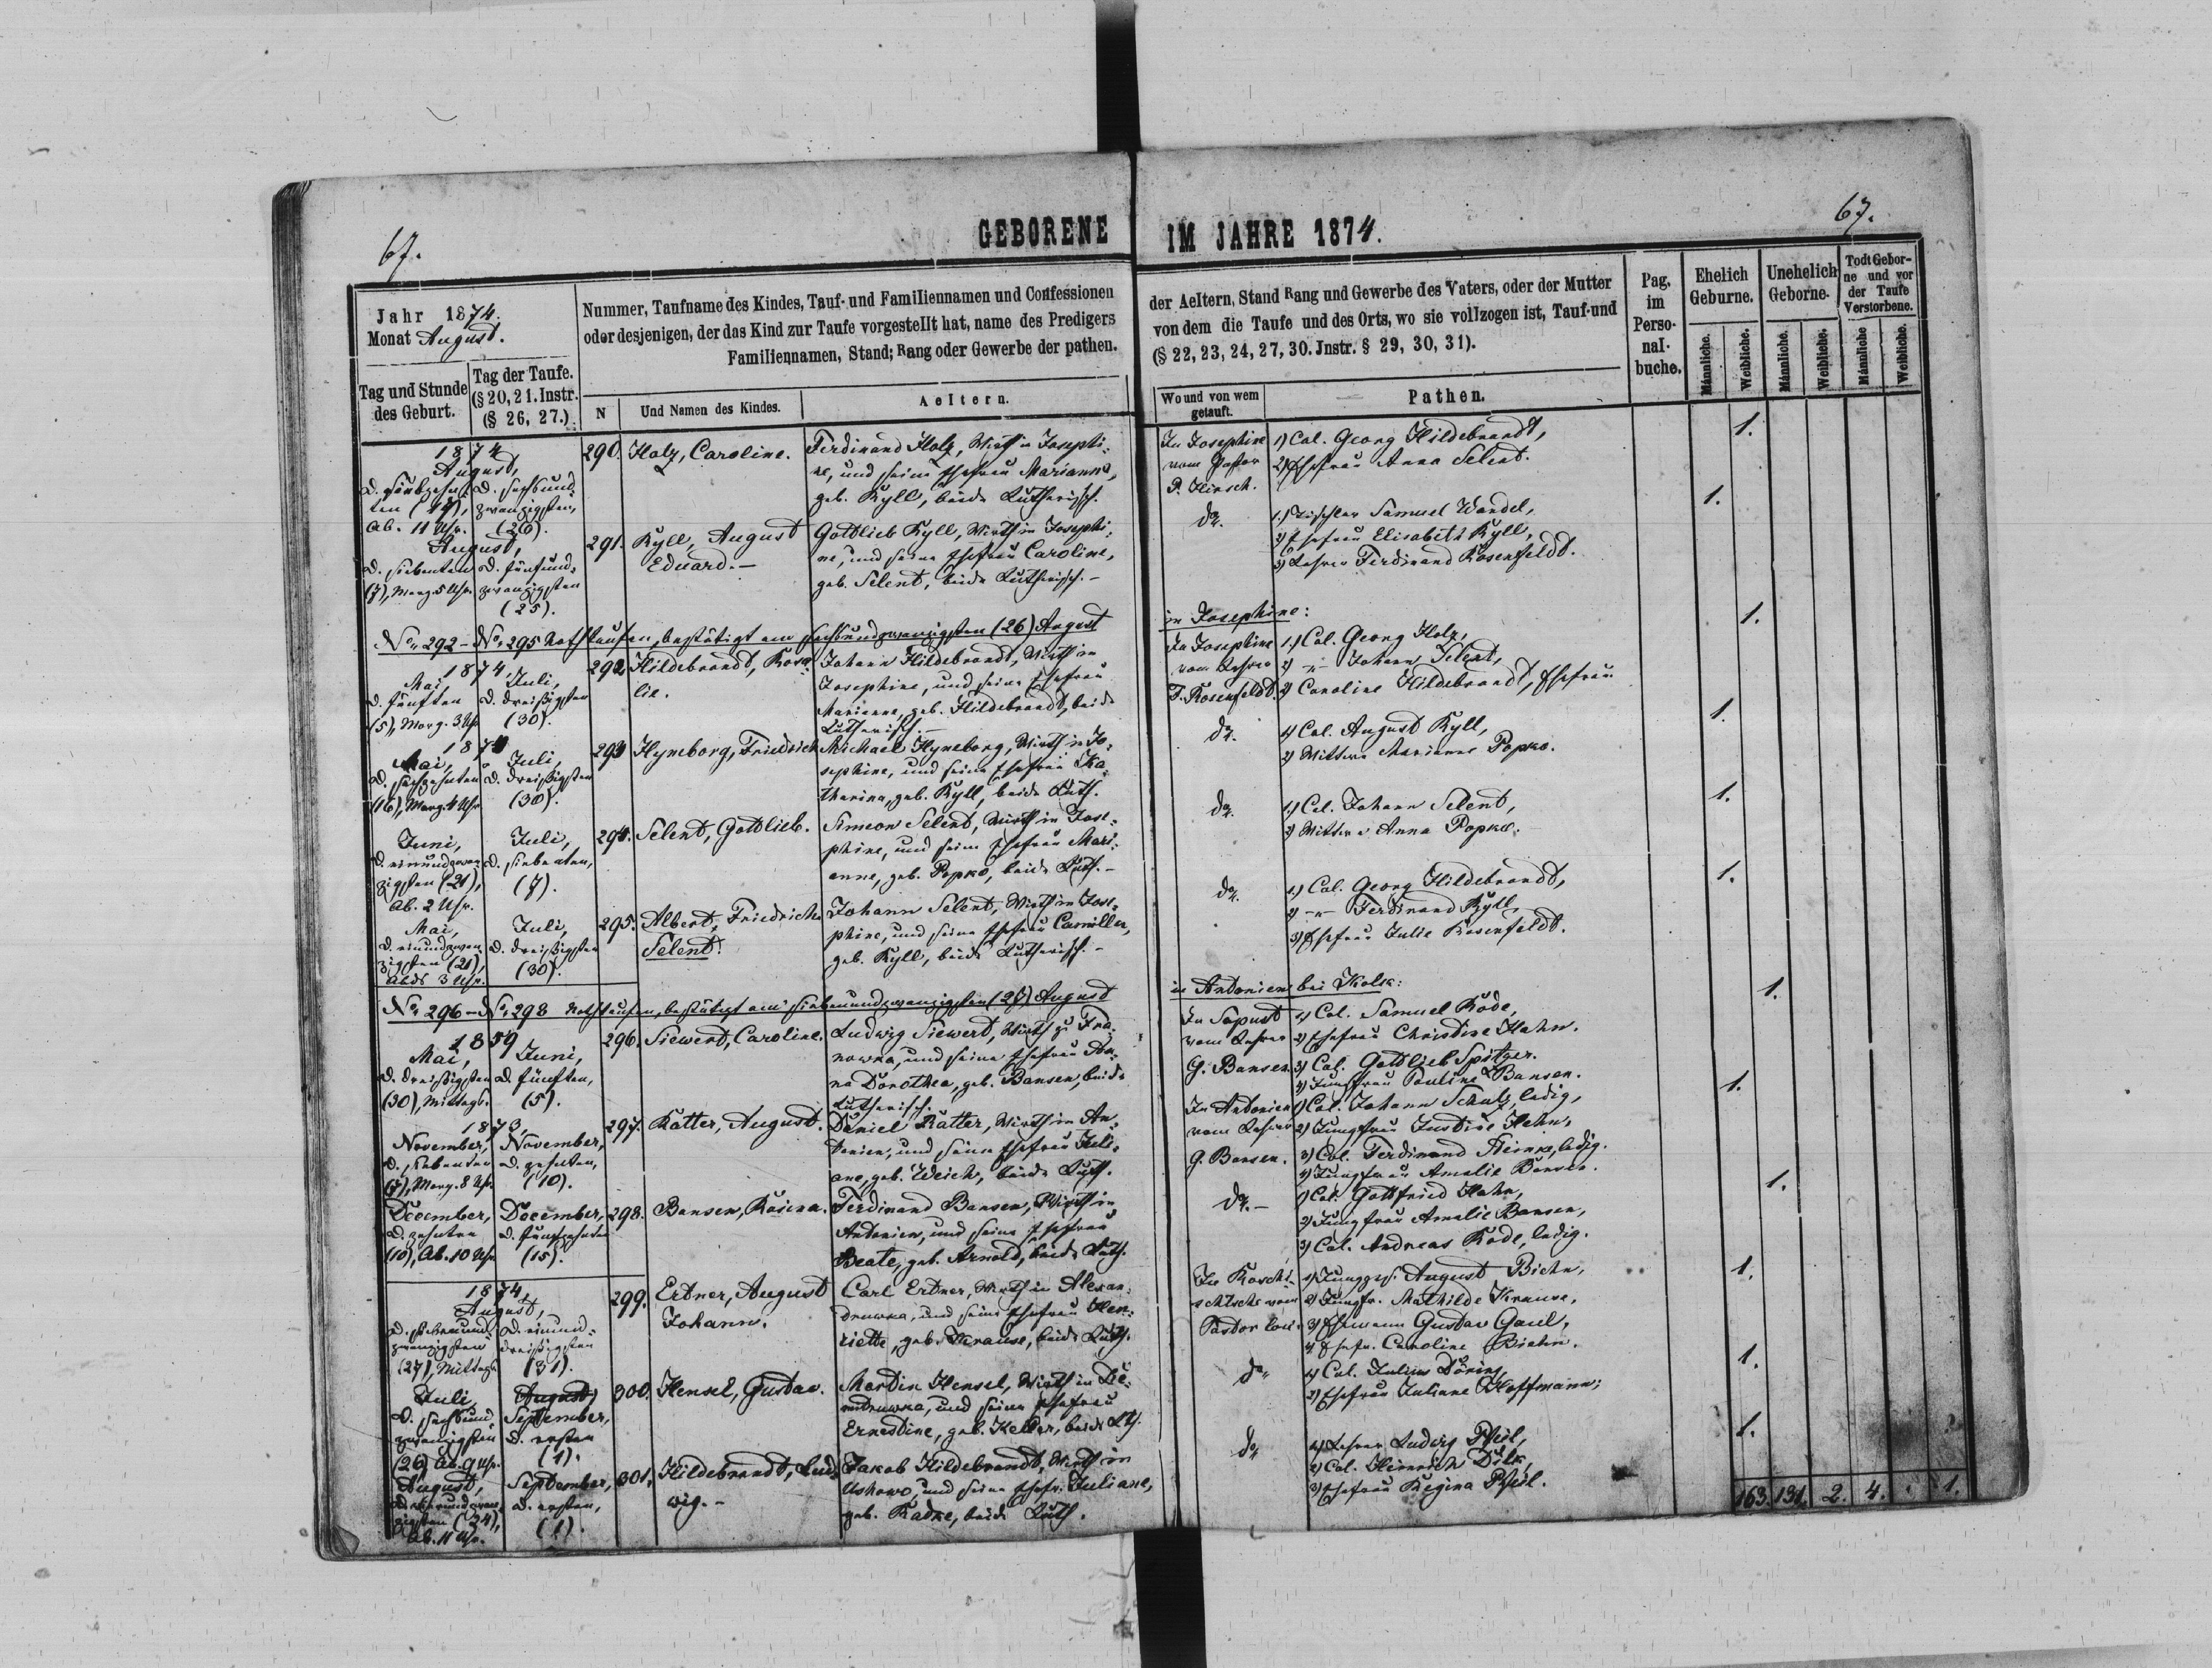 67.
GEBORENE
Jahr 1874.
Monat August.
Nummer, Taufname des Kindes, Tauf- und Familiennamen und Confessionen
oder desjenigen, der das Kind zur Taufe vorgestellt hat, name des Predigers
Familiennamen, Stand; Rang oder Gewerbe der pathen.
Tag und Stunde
des Geburt.
Tag der Taufe.
(§ 20, 21. Instr.
(§ 26, 27.)
N
Und Namen des Kindes.
Aeltern.
1874
August,
ten (14),
Ab. 11 Uhr.
D. sechsund-
zwanzigsten,
(26).
290.
Holz, Caroline.
Ferdinand Holz, Wirth in Josephi-
ne, und seine Ehefrau Marianne,
geb. Kyll, beide Lutherisch.
August,
D. siebenten
(7), Morg. 5 Uhr.
D. fünfund-
zwanzigsten
(25).
291.
Kyll, August
Eduard.-
Gottlieb Kyll, Wirth in Josephi-
ne, und seine Ehefrau Caroline,
geb. Selent, beide Lutherisch.-
No. 292 - No. 295 Nothtaufen, bestätigt am sechsundzwanzigsten (26) August
1874,
Mai,
D. fünften
(5), Morg. 3 Uhr
Juli,
D. dreißigsten
(30).
292
Hildebrandt, Rosa-
lie.
Johann Hildebrandt, Wirth in
Josephine, und seine Ehefrau
Marianne, geb. Hildebrandt, beide
Lutherisch.-
1874
Mai,
D. sechzehnten
(16), Morg. 4 Uhr
Juli,
D. dreißigsten
(30).
293
Hyneborg, Friedrich
Michael Hyneborg, Wirth in Jo-
sephine, und seine Ehefrau Ka-
tharina, geb. Kyll, beide Luth.
Juni,
D. einundzwan-
zigsten (21),
Ab. 2 Uhr.
Juli,
D. siebenten,
(7).
294.
Selent, Gottlieb.
Simeon Selent, Wirth in Jose-
phine, und seine Ehefrau Mari-
anne, geb. Popko, beide Luth.-
Mai,
D. einundzwan-
zigsten (21),
Abds 3 Uhr.
Juli,
D. dreißigsten
(30).
295.
Albert, Friedrich
Selent.
Johann Selent, Wirth in Jose-
phine, und seine Ehefrau Camilla,
geb. Kyll, beide Lutherisch.-
No. 296 - No. 298 Nothtaufen, bestätigt am siebenundzwanzigsten (27) August
1859
Mai,
D. dreißigsten
(30), Mittags.
Juni,
D. fünften,
(5).
296.
Siewert, Caroline.
Ludwig Siewert, Wirth zu
nowka, und seine Ehefrau An-
na Dorothea, geb. Bansen, beide
Lutherisch.
1873,
November,
D. siebenten
(7), Morg. 8 Uhr.
November,
D. zehnten,
(10).
297.
Katter, August.
Daniel Katter, Wirth in An-
tonien, und seine Ehefrau Juli-
ane, geb. Weich, beide Luth.
December,
D. zehnten
(10), Ab. 10 Uhr
December,
D. fünfzehnten
(15).
298.
Bansen, Rosina.
Ferdinand Bansen, Wirth in
Antonien, und seine Ehefrau
Beate, geb. Arnold, beide Luth.
1874,
August,
D. siebenund-
zwanzigsten
(27), Mittags.
D. einund-
dreißigsten
(31).
299.
Ertner, August
Johann.
Carl Ertner, Wirth in Alexan-
druwka, und seine Ehefrau Hen-
riette, geb. Krause, beide Luth.
Juli,
D. sechsund-
zwanzigsten
(26) Ab. 9 Uhr.
August,
September,
D. ersten
(1).
300.
Hensel, Gustav.
Martin Hensel, Wirth in
Ernestine, geb. Keller, beide Lth.
August,
(24),
Ab. 11 Uhr.
September,
D. ersten,
(1).
301.
Hildebrandt, Lud-
wig.-
Jakob Hildebrandt, Wirth in
Ushowo, und seine Ehefr. Juliane,
geb. Radke, beide Luth.
67.
IM JAHRE 1874.
der Aeltern, Stand Rang und Gewerbe des Vaters, oder der Mutter
von dem die Taufe und des Orts, wo sie vollzogen ist, Tauf-und
(§ 22, 23, 24, 27, 30. Jnstr. § 29, 30, 31).
Wo und von wem
getauft.
Pathen.
Pag.
im
Perso-
nal-
buche.
Ehelich
Geburne.
Unehelich
Geborne.
Todt Gebor-
ne und vor
der Taufe
Verstorbene.
Männliche.
Weibliche.
Männliche.
Weibliche.
Männliche
Weibliche.
In Josephine
vom Pastor
P. Hirsch.
1) Col. Georg Hildebrandt,
2) Ehefrau Anna Selent.
1.
do.
1.) Tischler Samuel Wandel,
2) Ehefrau Elisabeth Kyll,
3) Lehrer Ferdinand Rosenfeldt.
1.
in Josephine:
In Josephine
vom Lehrer
F. Rosenfeldt.
1.) Col. Georg Holz,
2) -"- Johann Selent,
3) Caroline Hildebrandt, Ehefrau
1.
do.
1) Col. August Kyll,
2) Wittwe Marianne Popko.
1.
do.
1.) Col. Johann Selent,
2) Wittwe Anna Popko.
1.
do.
1.) Col. Georg Hildebrandt,
2) -"- Ferdinand Kyll,
3) Ehefrau Julie Rosenfeldt.
1.
in Antonien bei Kolk:
In Sapust
vom Lehrer
G. Bansen.
1) Col. Samuel Rode,
2) Ehefrau Christine Hahn.
3) Col. Gottlieb Spitzer.
4) Jungfrau Pauline Bansen.
1.
In Antonien
vom Lehrer
G. Bansen.
1) Col. Johann Schulz, ledig,
2) Jungfrau Justine Hahn,
3) Col. Ferdinand Heinke, ledig.
4) Jungfrau Amalie Bansen.
1.
do.-
1) Col. Gottfried Hahn,
2) Jungfrau Amalie Bansen,
3) Col. Andreas Rode, ledig.
1.
In Roschi-
schtsche vom
Pastor loci.
1) Junggs. August Biehn,
2) Jungfr. Mathilde Krause,
3) Ehemann Gustav Gaul,
4) Ehefr. Caroline Biehn.
1.
do
1) Col. Julius Döring,
2) Ehefrau Juliane Hoffmann;
1.
do
1) Lehrer Ludwig Pfeil,
2) Col. Heinrich Dilk,
3) Ehefrau Regina Pfeil.
1.
163. 131. 2. 4. . 1.